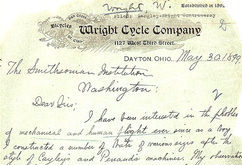 Wright, W.
Established in 1892.
Wright Cycle Company
1127 West Third Street.
DAYTON, OHIO, May 30, 1899
The Smithsonian Institution
Washington;
Dear Sirs:
I have been interested in the problem
of mechanical and human flight ever since as a boy
I constructed a number of bats of various sizes after
the style of Cayley's and Penaud's machines. My observations